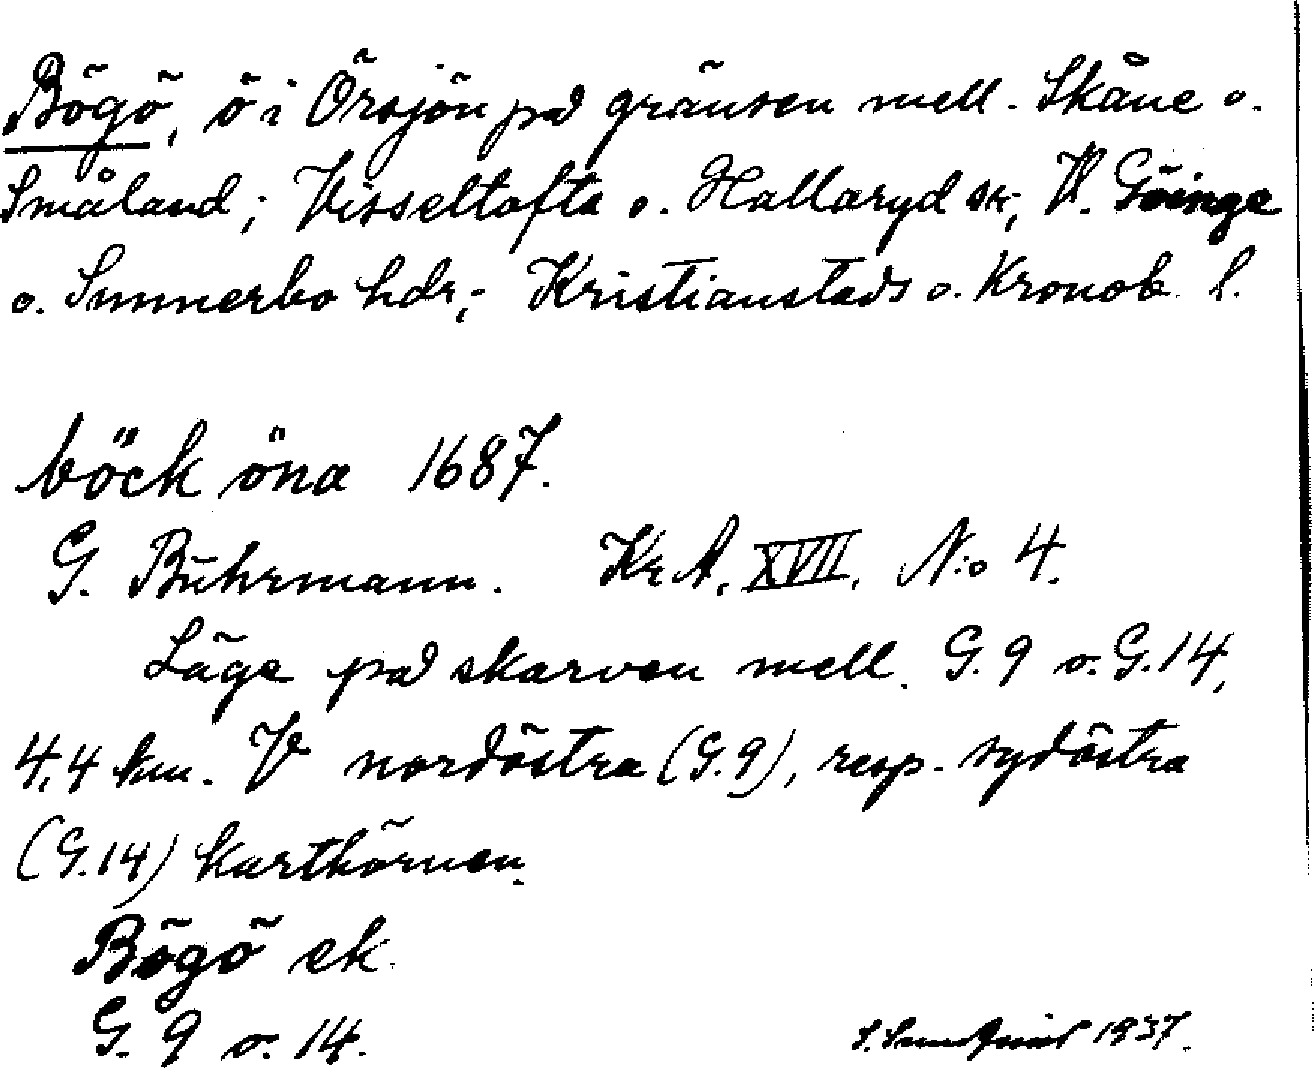 Bögö, ö i Örsjön på gränsen mell. Skåne o.
Småland; Visseltofta o. Hallaryd sk; V. Göinge
o. Sunnerbo hdr; Kristianstads o. Kronob. l.
böck öna 1687.
G. Buhrmann. Kr A. XVII. N:o 4.
Läge på skarven mell. G. 9 o. G. 14,
4,4 km. V nordöstra (G. 9), resp. sydöstra
(G. 14) karthörnen.
Bögö ek.
G. 9 o. 14.
1937.